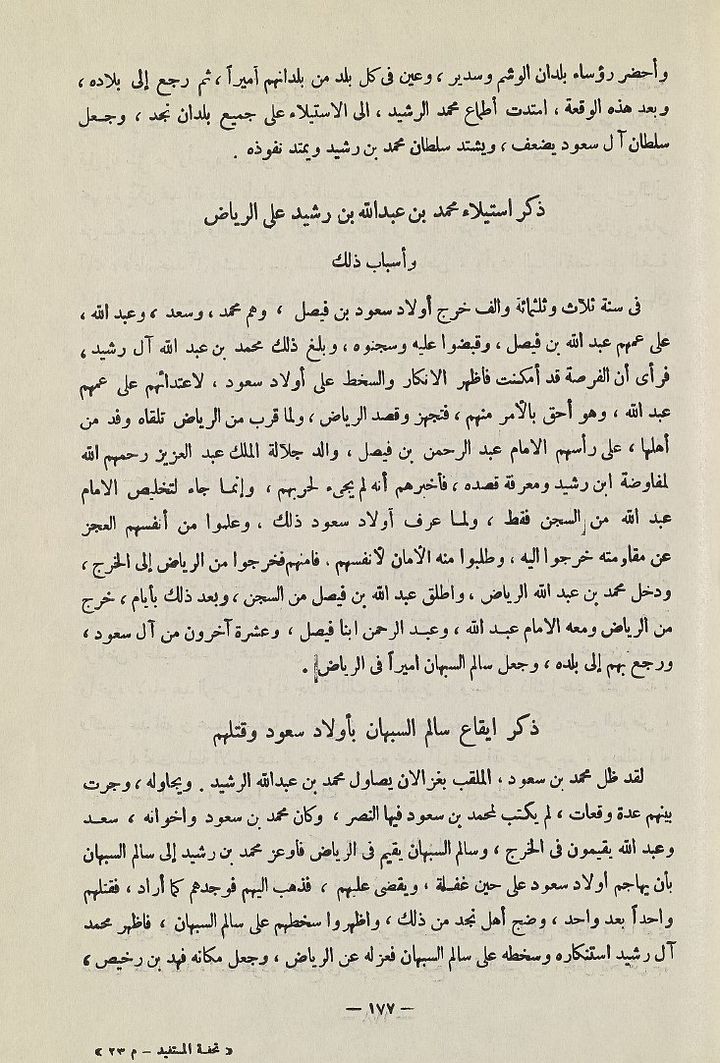 وأحضر رؤساء بلدان الوشم وسدير ، وعين فى كل بلد من بلدانهم آميراً ، ثم رجع إلى بلاده ،
وبعد هذه الوقعة ، امتدت أطماع محمد الرشيد ، الى الاستيلاء على جميع بلدان نجد ، وجعل
سلطان آل سعود يضعف ، ويشتد سلطان محمد بن رشيد ويمتد نفوذه .
ذكر استيلاء محمد بن عبدالله بن رشيد على الرياض
وأسباب ذلك
فى سنة ثلاث وثلثمائة والف خرج أولاد سعود بن فيصل ، وهم محمد ، وسعد ، وعبد الله ،
على عمهم عبد الله بن فيصل ، وقبضوا عليه وسجنوه ، وبلغ ذلك محمد بن عبد الله آل رشيد ،
فرأى أن الفرصة قد أمكنت فاظهر الانكار والسخط على أولاد سعود ، لاعتدائهم على عمهم
عبد الله ، وهو أحق بالأمر منهم ، فتجهز وقصد الرياض ، ولما قرب من الرياض تلقاه وفد من
أهلها ، على رأسهم الامام عبد الرحمن بن فيصل ، والد جلالة الملك عبد العزيز رحمهم الله
لمفاوضة ابن رشيد ومعرفة قصده ، فأخبرهم أنه لم يجىء لحربهم ، وإنما جاء لتخليص الامام
عبد الله من السجن فقط ، ولما عرف أولاد سعود ذلك ، وعلموا من أنفسهم العجز
عن مقاومته خرجوا اليه ، وطلبوا منه الأمان لأنفسهم . فامنهم فخرجوا من الرياض إلى الخرج ،
ودخل محمد بن عبد الله الرياض ، واطلق عبد الله بن فيصل من السجن ، وبعد ذلك بأيام ، خرج
من الرياض ومعه الامام عبد الله ، وعبد الرحمن ابنا فيصل ، وعشرة آخرون من آل سعود ،
ورجع بهم إلى بلده ، وجعل سالم السبهان اميراً فى الرياض .
ذكر ايقاع سالم السبهان بأولاد سعود وقتلهم
لقد ظل محمد بن سعود ، الملقب بغزالان يصاول محمد بن عبدالله الرشيد . ويحاوله ، وجرت
بينهم عدة وقعات ، لم يكتب لمحمد بن سعود فيها النصر ، وكان محمد بن سعود واخوانه ، سعد
وعبد الله يقيمون فى الخرج ، وسالم السبهان يقيم فى الرياض فاوعز محمد بن رشيد إلى سالم السبهان
بأن يهاجم أولاد سعود على حين غفلة ، ويقضى عليهم ، فذهب اليهم فوجدهم كما أراد ، فقتلهم
واحداً بعد واحد ، وضج أهل نجد من ذلك ، واظهروا سخطهم على سالم السبهان ، فاظهر محمد
آل رشيد استنكاره وسخطه على سالم السبهان فعزله عن الرياض ، وجعل مكانه فهد بن رخيص ،
— ١٧٧ —
« تحفة المستفيد – م ٢٣ »